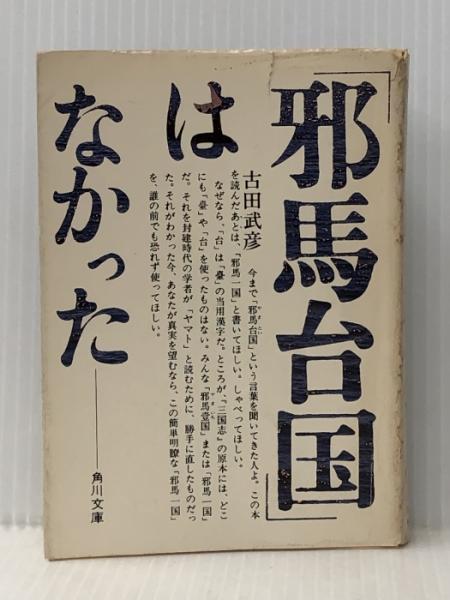 「邪馬台国」
は
なかった
古田武彦
今まで「邪馬台国」という言葉を聞いてきた人よ。この本
を読んだあとは、「邪馬一国」と書いてほしい。しゃべってほしい。
なぜなら、「台」は「臺」の当用漢字だ。ところが、『三国志』の原本には、どこ
にも「臺」や「台」を使ったものはない。みんな「邪馬壹国」または「邪馬一国」
だ。それを封建時代の学者が「ヤマト」と読むために、勝手に直したものだっ
た。それがわかった今、あなたが真実を望むなら、この簡単明瞭な「邪馬一国」
を、誰の前でも恐れず使ってほしい。
角川文庫